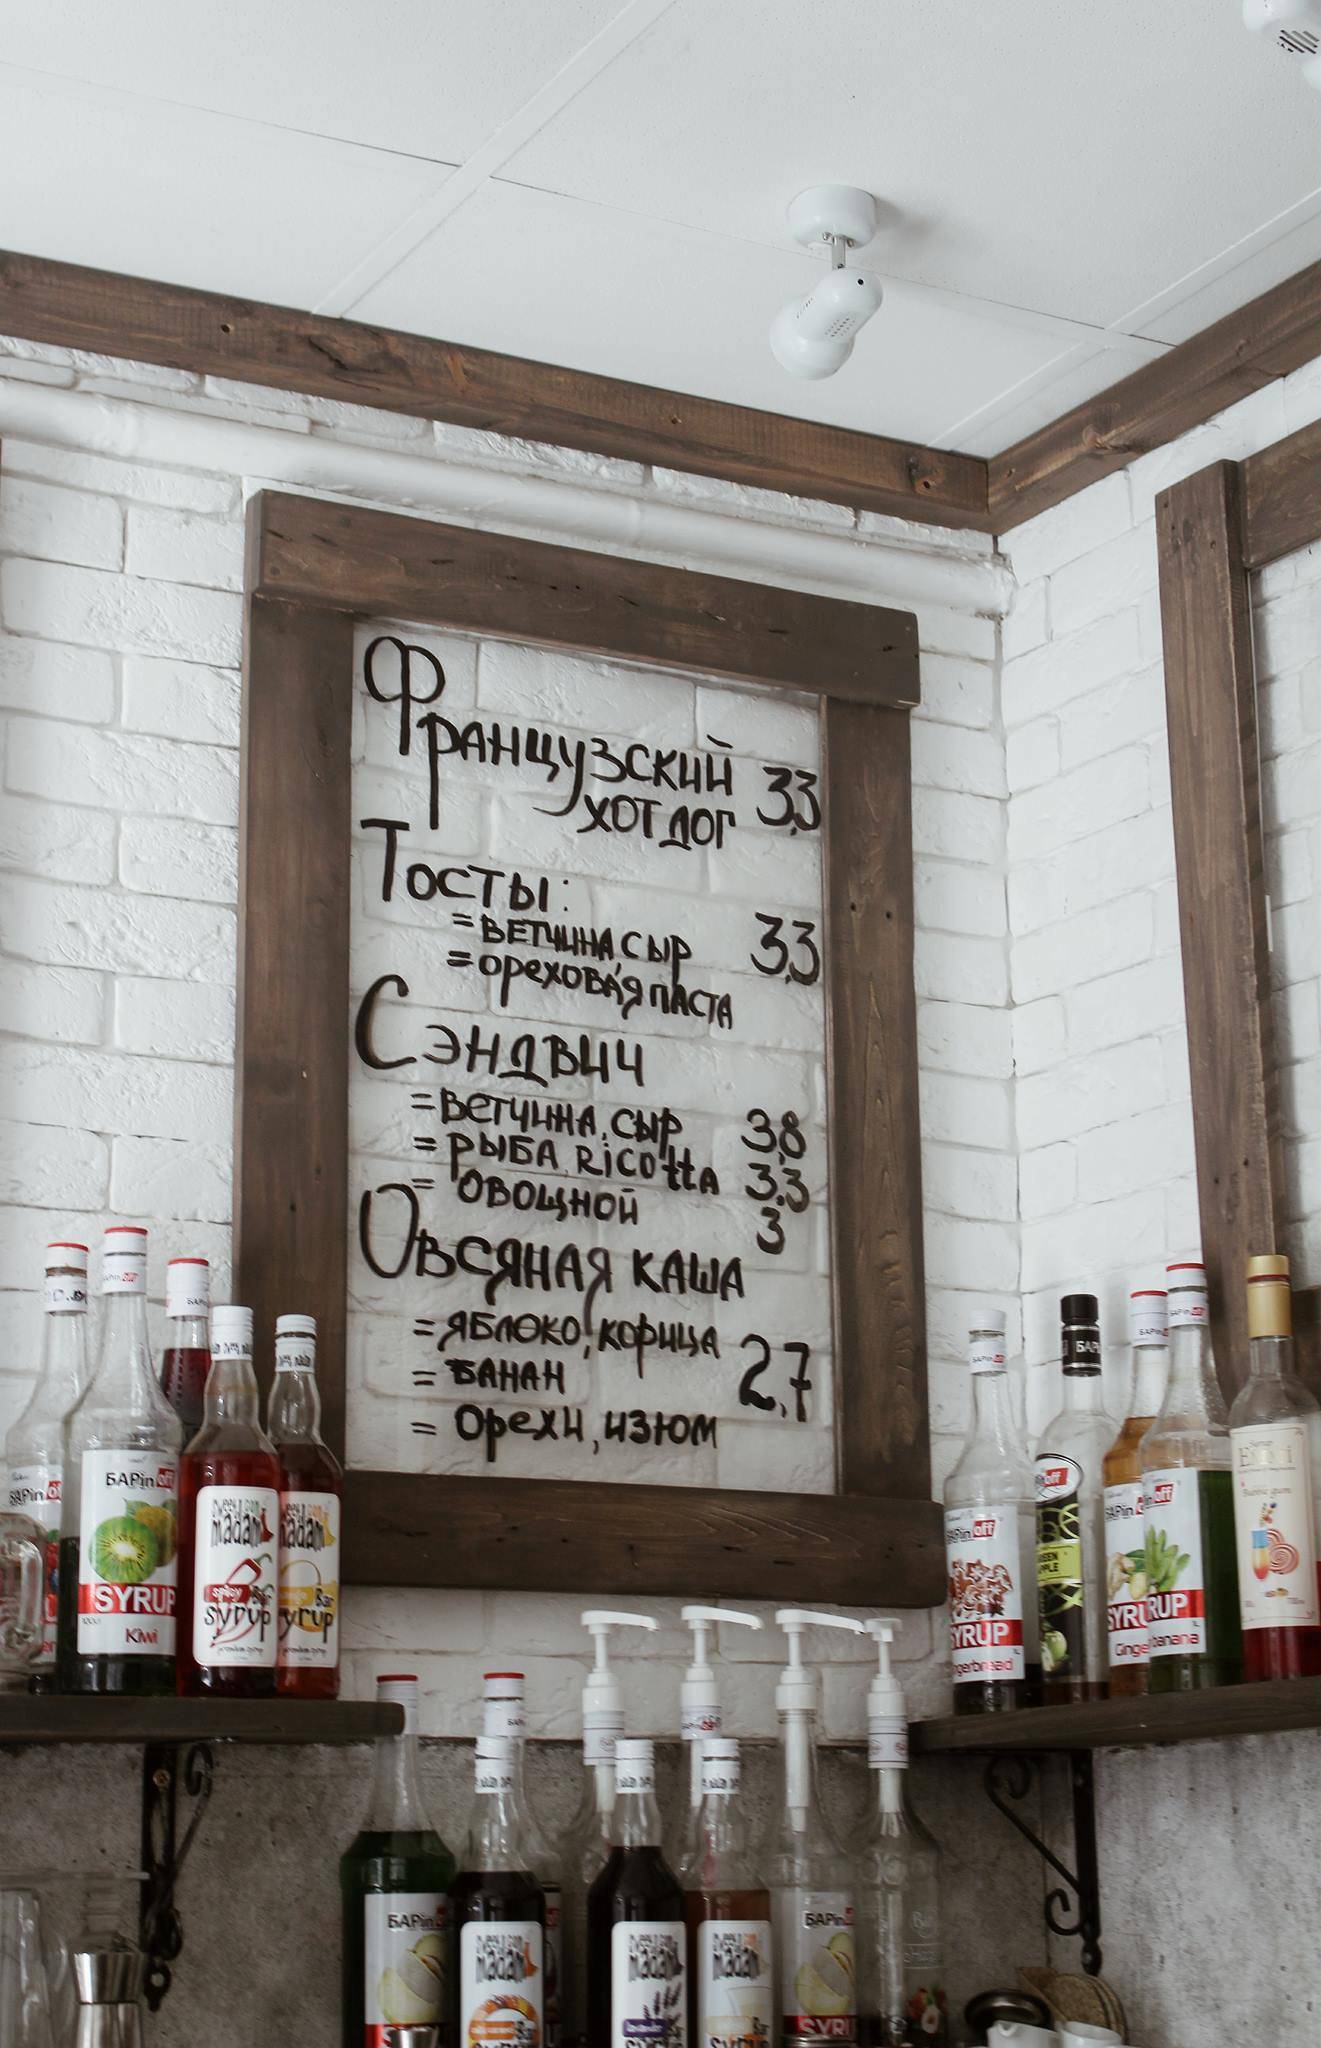 Французский
хот дог 3,3
Тосты:
= ветчина, сыр 3,3
= ореховая паста
Сэндвич
= ветчина, сыр 3,8
= рыба, ricotta 3,3
= овощной 3
Овсяная каша
= яблоко, корица 2,7
= банан
= орехи, изюм
БАРinoff
SYRUP
Kiwi
madam
spicy Bar
syrup
madam
Bar
syrup
БАРinoff
SYRUP
gerbread
off
GREEN
APPLE
БАРin
SYRU
Ginge
off
RUP
banana
Bubble gum
БАРin
madam
Bar
madam
madam
Bar
БАРin
SYRU